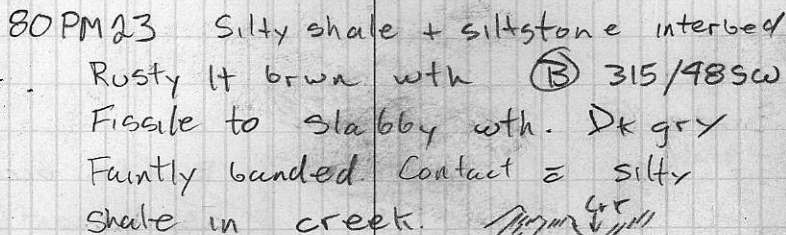 80PM23 Silty shale + siltstone interbed
Rusty lt brwn wth Ⓑ 315/48SW
Fissile to slabby wth. Dk gry
Faintly banded. Contact c̄ silty
shale in creek.